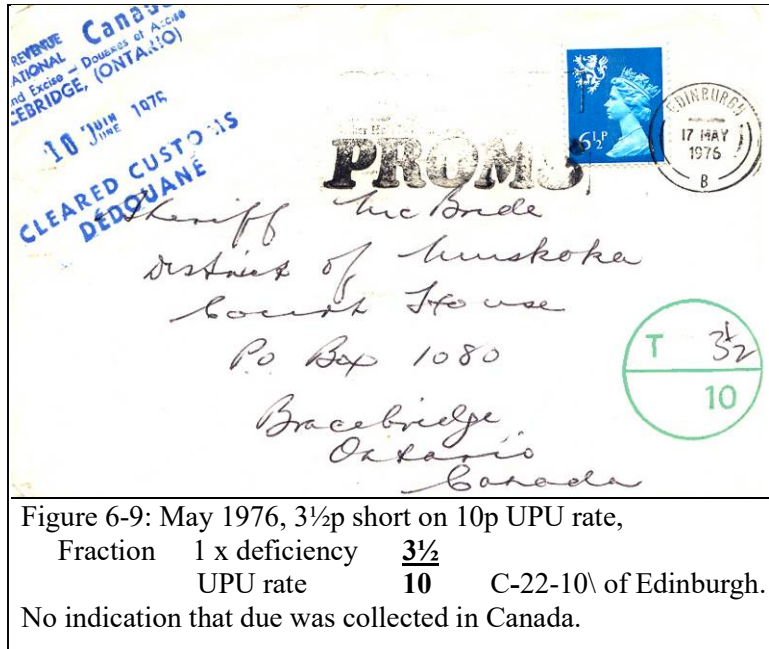 REVENUE Canada
ATIONAL
nd Excise – Douanes et Accise
CEBRIDGE, (ONTARIO)
10 JUIN JUNE 1976
CLEARED CUSTOMS
DEDOUANÉ
6½P
EDINBURGH
17 MAY
1976
B
PROMS
Sheriff McBride
District of Muskoka
Court House
Po Box 1080
Bracebridge
Ontario
Canada
T 3½
10
Figure 6-9: May 1976, 3½p short on 10p UPU rate,
Fraction 1 x deficiency 3½
UPU rate 10 C-22-10\ of Edinburgh.
No indication that due was collected in Canada.